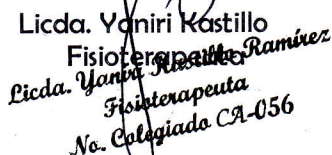 Licda. Yaniri Kastillo
Fisioterapeuta
Licda. Yaniri Kastillo Ramírez
Fisioterapeuta
No. Colegiado CA-056